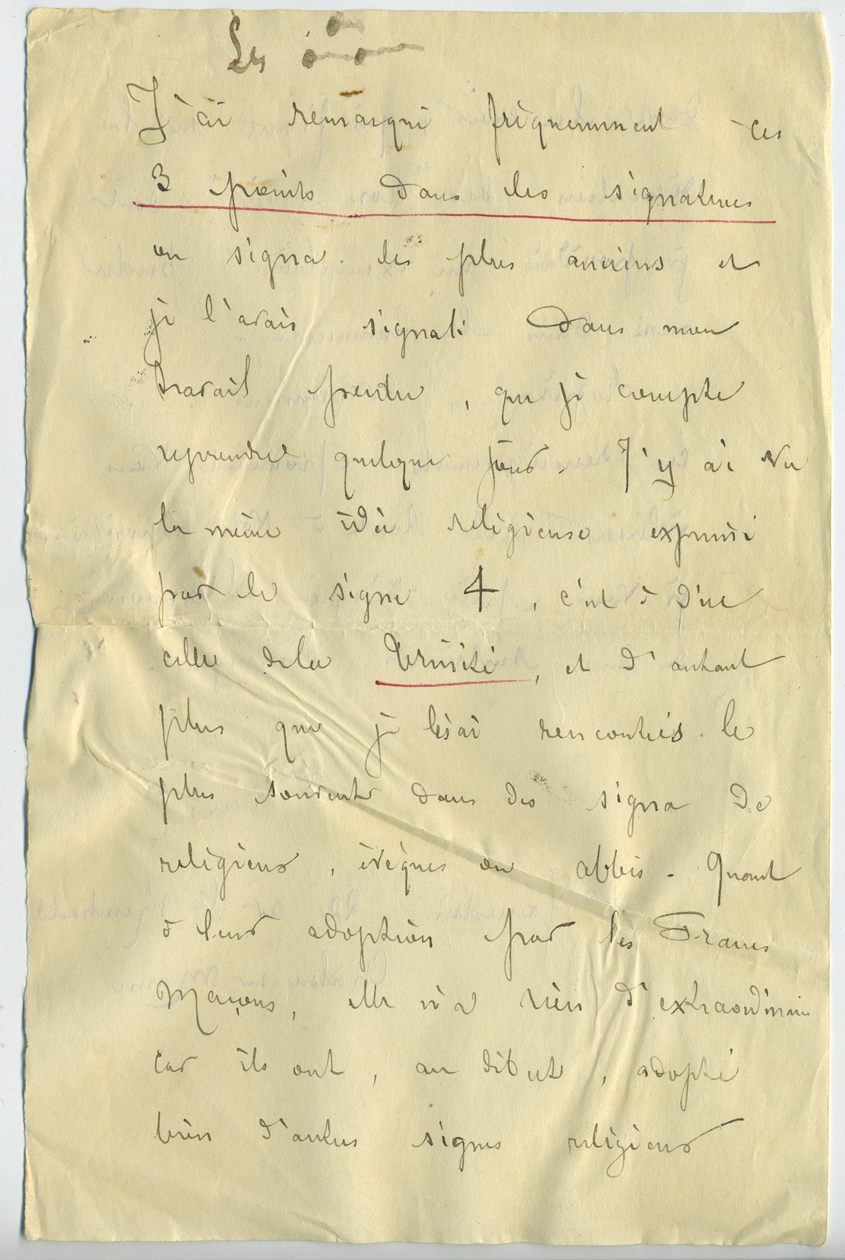 Les ∴
J'ai remarqué fréquemment ces
3 points dans les signatures
ou signa. les plus anciens et
je l'avais signalé dans mon
travail perdu, que je compte
reprendre quelque jour. J'y ai vu
la même idée religieuse exprimée
par le signe 4, c'est à dire
celle de la Trinité, et d'autant
plus que je les ai rencontrés le
plus souvent dans des signa de
religieux, évêques ou abbés. Quant
à leur adoption par les Francs
Maçons, elle n'a rien d'extraordinaire
car ils ont, au début, adopté
bien d'autres signes religieux